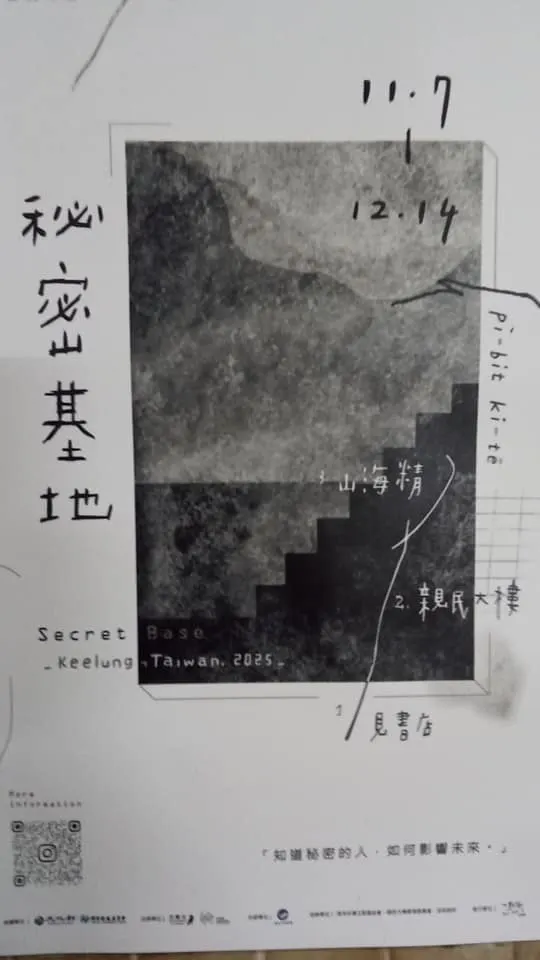 11.7
|
12.14
秘密基地
pì-bi̍t ki-tē
3 山海精
2. 親民大樓
1 見書店
Secret Base
_Keelung, Taiwan. 2025_
More
information
「知道秘密的人,如何影響未來。」